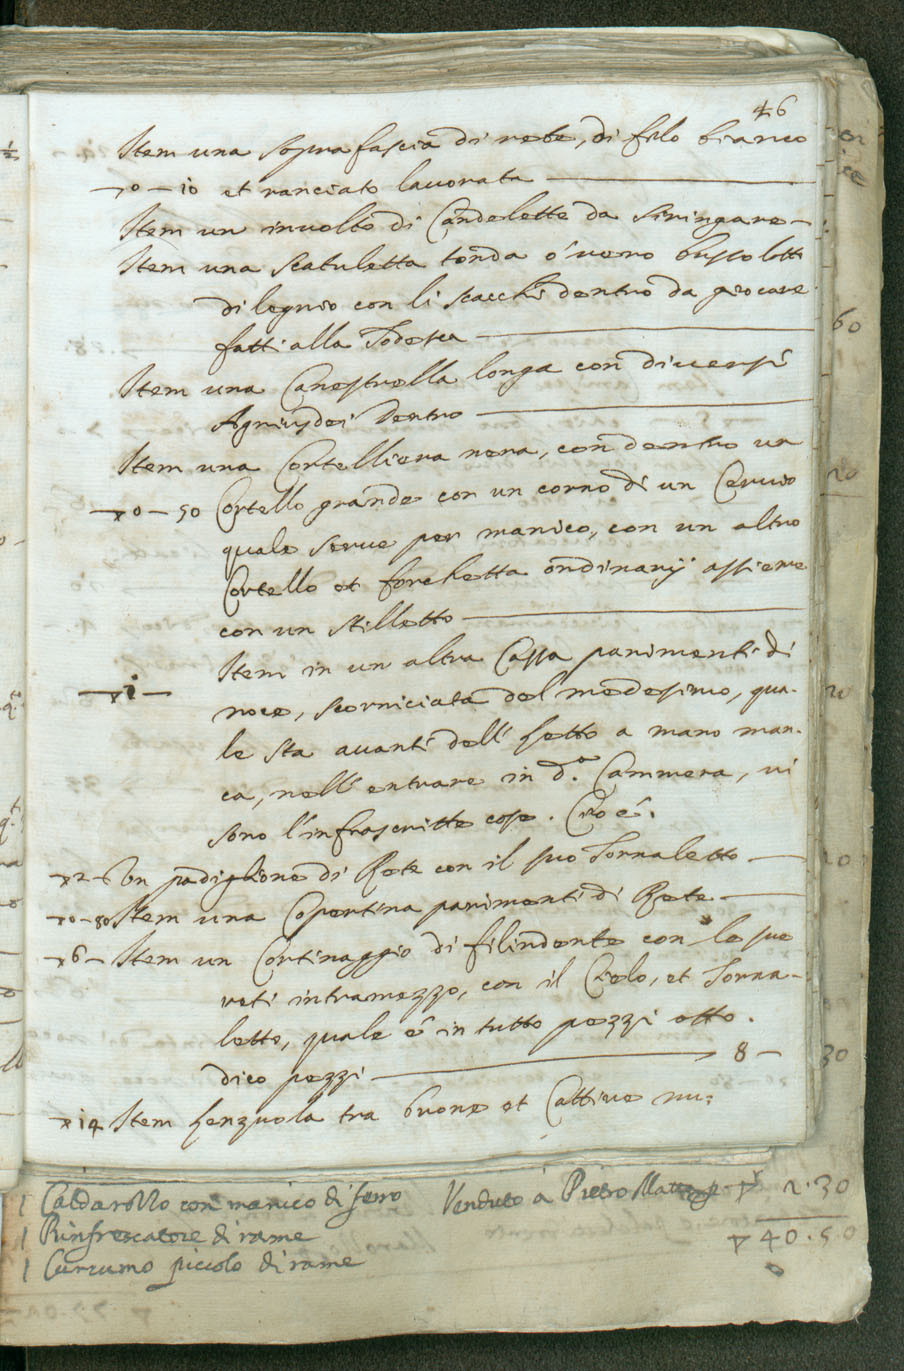 46
Item una sopra fascia di rete, di filo bianco
▽0 – 10 et ranciato lavorata
Item un involto di Candelette da siringare –
Item una scatuletta tonda o' vero bussolotto
di legnio con li scacchi dentro da giocare
fatti alla Todesca
Item una Canestrella longa con diversi
Agniusdei dentro
Item una Cortelliera nera, con dentro un
▽0 – 50 Cortello grande con un corno di un Cervio
quale serve per manico, con un altro
Cortello et forchetta ordinarij assieme
con un stilletto
Item in un altra Cassa parimenti di
▽1 –
noce, scorniciata del medesimo, qua-
le sta avanti dell' letto a mano man-
ca, nell' entrare in d.ª Cammera, vi
sono l'infrascritte cose. Cio è.
▽2 – Un padiglione di Rete con il suo Tornaletto –
▽0 – 80 Item una Copertina parimenti di Rete –
▽6 – Item un Cortinaggio di filindente con le sue
reti intramezzo, con il Cielo, et Torna-
letto, quale è in tutto pezzi otto.
dico pezzi 8 –
▽14 Item lenzuola tra buone et Cattive nu:
1 Caldarozzo con manico di ferro Venduto à Pietro ▽ 2.30
1 Rinfrescatore di rame ▽ 40.50
1 Cucumo piccolo di rame
60
20
20
30